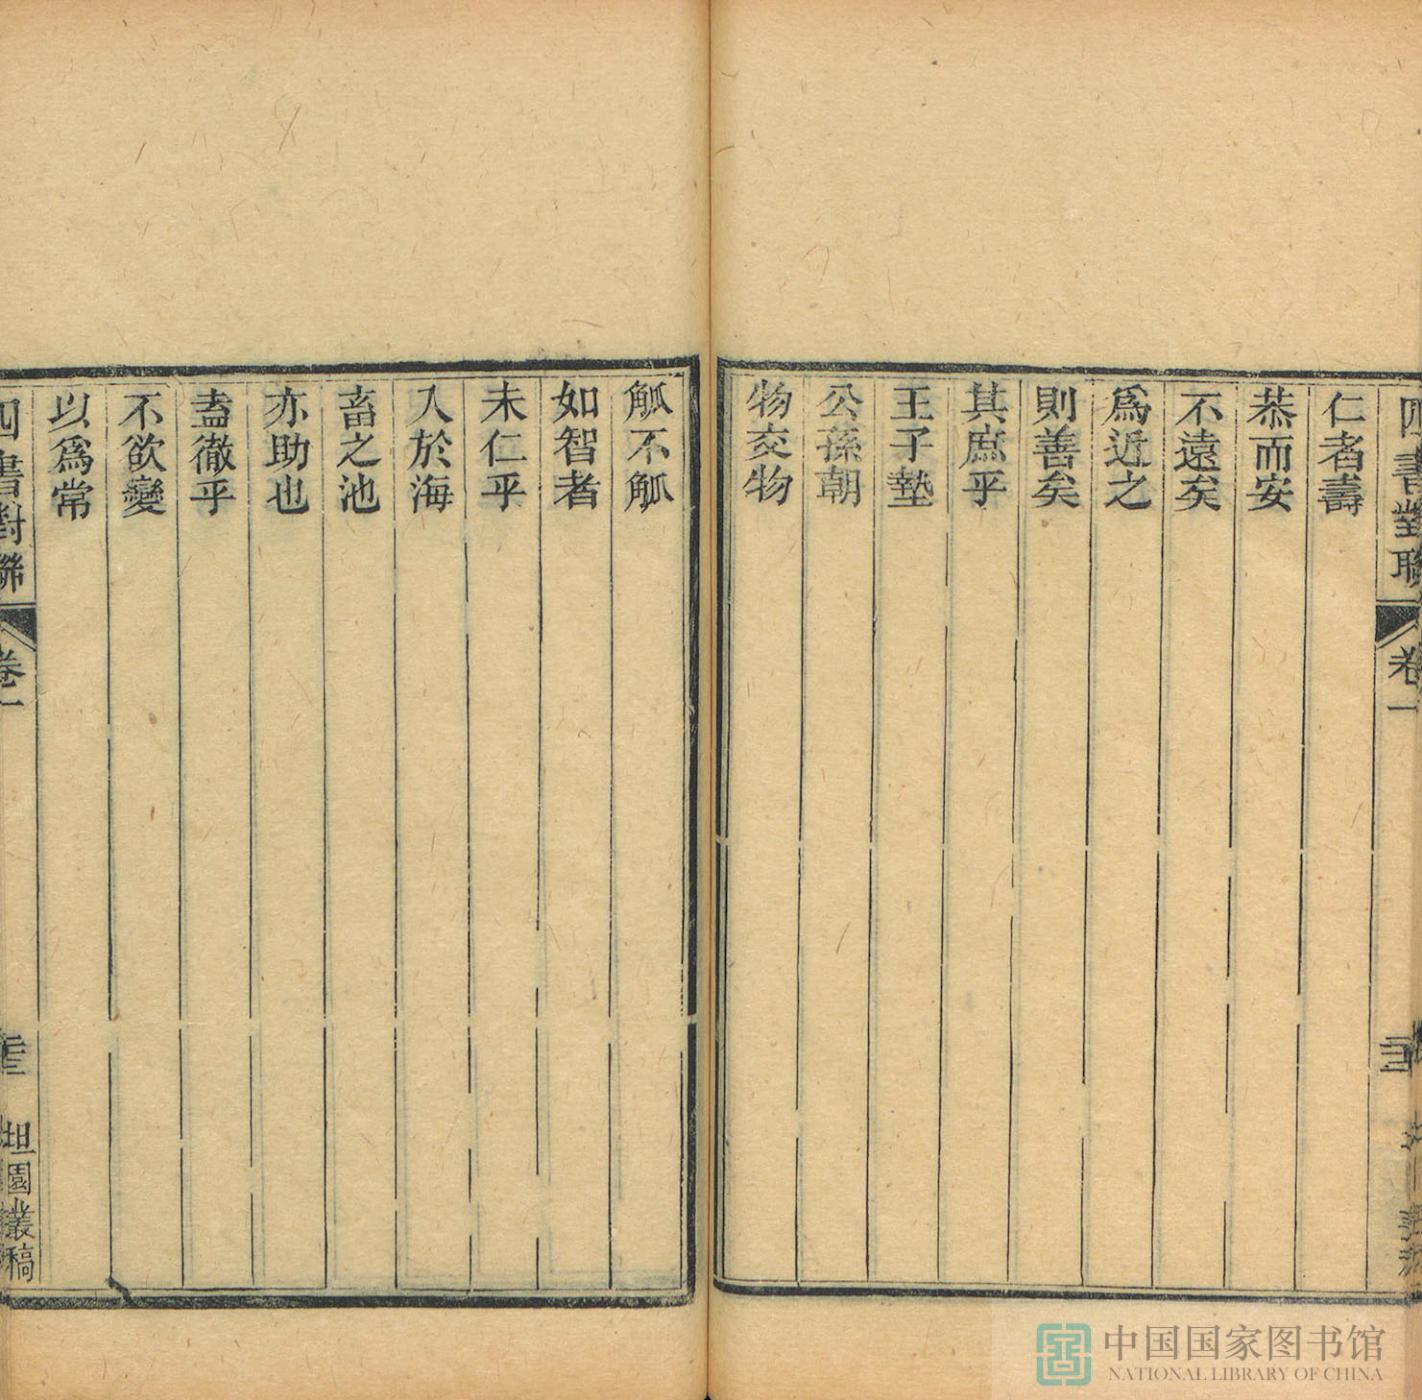 四書對聯 卷一
仁者壽
恭而安
不遠矣
爲近之
則善矣
其庶乎
王子墊
公孫朝
物交物
觚不觚
如智者
未仁乎
入於海
畜之池
亦助也
盍徹乎
不欲變
以爲常
四書對聯 卷一 坦園叢稿
中国国家图书馆
NATIONAL LIBRARY OF CHINA